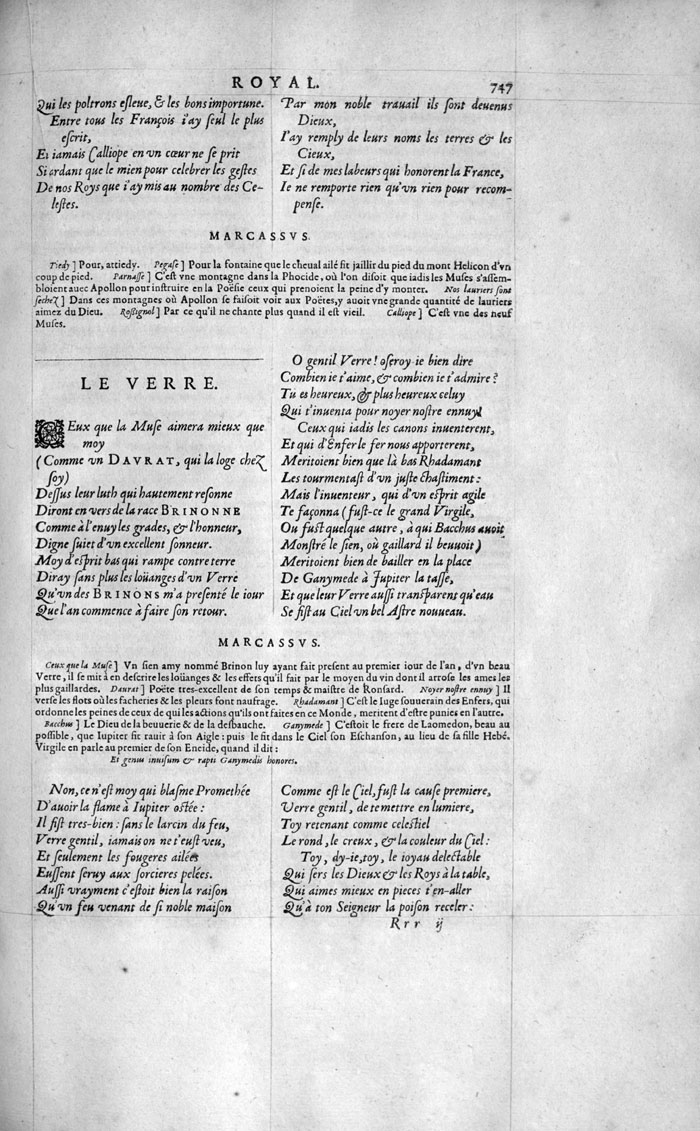 ROYAL.
747
Qui les poltrons esleue, & les bons importune.
Entre tous les François i'ay seul le plus
escrit,
Et iamais Calliope en vn cœur ne se prit
Si ardant que le mien pour celebrer les gestes
De nos Roys que i'ay mis au nombre des Ce-
lestes.
Par mon noble trauail ils sont deuenus
Dieux,
I'ay remply de leurs noms les terres & les
Cieux,
Et si de mes labeurs qui honorent la France,
Ie ne remporte rien qu'vn rien pour recom-
pense.
MARCASSVS.
Tiedy ] Pour, attiedy. Pegase ] Pour la fontaine que le cheual ailé fit jaillit du pied du mont Helicon d'vn
coup de pied. Parnasse ] C'est vne montagne dans la Phocide, où l'on disoit que iadis les Muses s'assem-
bloient auec Apollon pour instruire en la Poësie ceux qui prenoient la peine d'y monter. Nos lauriers sont
sechez ] Dans ces montagnes où Apollon se faisoit voir aux Poëtes, y auoit vne grande quantité de lauriers
aimez du Dieu. Rossignol ] Par ce qu'il ne chante plus quand il est vieil. Calliope ] C'est vne des neuf
Muses.
LE VERRE.
Ceux que la Muse aimera mieux que
moy
(Comme vn DAVRAT, qui la loge chez
soy)
Dessus leur luth qui hautement resonne
Diront en vers de la race BRINONNE
Comme à l'enuy les grades, & l'honneur,
Digne suiet d'vn excellent sonneur.
Moy d'esprit bas qui rampe contre terre
Diray sans plus les loüanges d'vn Verre
Qu'vn des BRINONS m'a presenté le iour
Que l'an commence à faire son retour.
O gentil Verre! oseroy ie bien dire
Combien ie t'aime, & combien ie t'admire?
Tu es heureux, & plus heureux celuy
Qui t'inuenta pour noyer nostre ennuy!
Ceux qui iadis les canons inuenterent,
Et qui d'Enfer le fer nous apporterent,
Meritoient bien que là bas Rhadamant
Les tourmentast d'vn juste chastiment:
Mais l'inuenteur, qui d'vn esprit agile
Te façonna (fust-ce le grand Virgile,
Ou fust quelque autre, à qui Bacchus auoit
Monstré le sien, où gaillard il beuuoit)
Meritoient bien de bailler en la place
De Ganymede à Jupiter la tasse,
Et que leur Verre aussi transparent qu'eau
Se fist au Ciel vn bel Astre nouueau.
MARCASSVS.
Ceux que la Muse ] Vn sien amy nommé Brinon luy ayant fait present au premier iour de l'an, d'vn beau
Verre, il se mit à en descrire les loüanges & les effets qu'il fait par le moyen du vin dont il arrose les ames les
plus gaillardes. Daurat ] Poëte tres-excellent de son temps & maistre de Ronsard. Noyer nostre ennuy ] Il
verse les flots où les facheries & les pleurs font naufrage. Rhadamant ] C'est le Iuge souuerain des Enfers, qui
ordonne les peines de ceux de qui les actions qu'ils ont faites en ce Monde, meritent d'estre punies en l'autre.
Bacchus ] Le Dieu de la beuuerie & de la desbauche. Ganymede ] C'estoit le frere de Laomedon, beau au
possible, que Iupiter fit rauir à son Aigle: puis le fit dans le Ciel son Eschanson, au lieu de sa fille Hebé.
Virgile en parle au premier de son Eneide, quand il dit:
Et genus inuisum & rapti Ganymedis honores.
Non, ce n'est moy qui blasme Promethée
D'auoir la flame à Iupiter ostée:
Il fist tres-bien: sans le larcin du feu,
Verre gentil, iamais on ne t'eust veu,
Et seulement les fougeres ailées
Eussent seruy aux sorcieres pelées.
Aussi vrayment c'estoit bien la raison
Qu'vn feu venant de si noble maison
Comme est le Ciel, fust la cause premiere,
Verre gentil, de te mettre en lumiere,
Toy retenant comme celestiel
Le rond, le creux, & la couleur du Ciel:
Toy, dy-ie, toy, le ioyau delectable
Qui sers les Dieux & les Roys à la table,
Qui aimes mieux en pieces t'en-aller
Qu'à ton Seigneur la poison receler:
Rrr ij